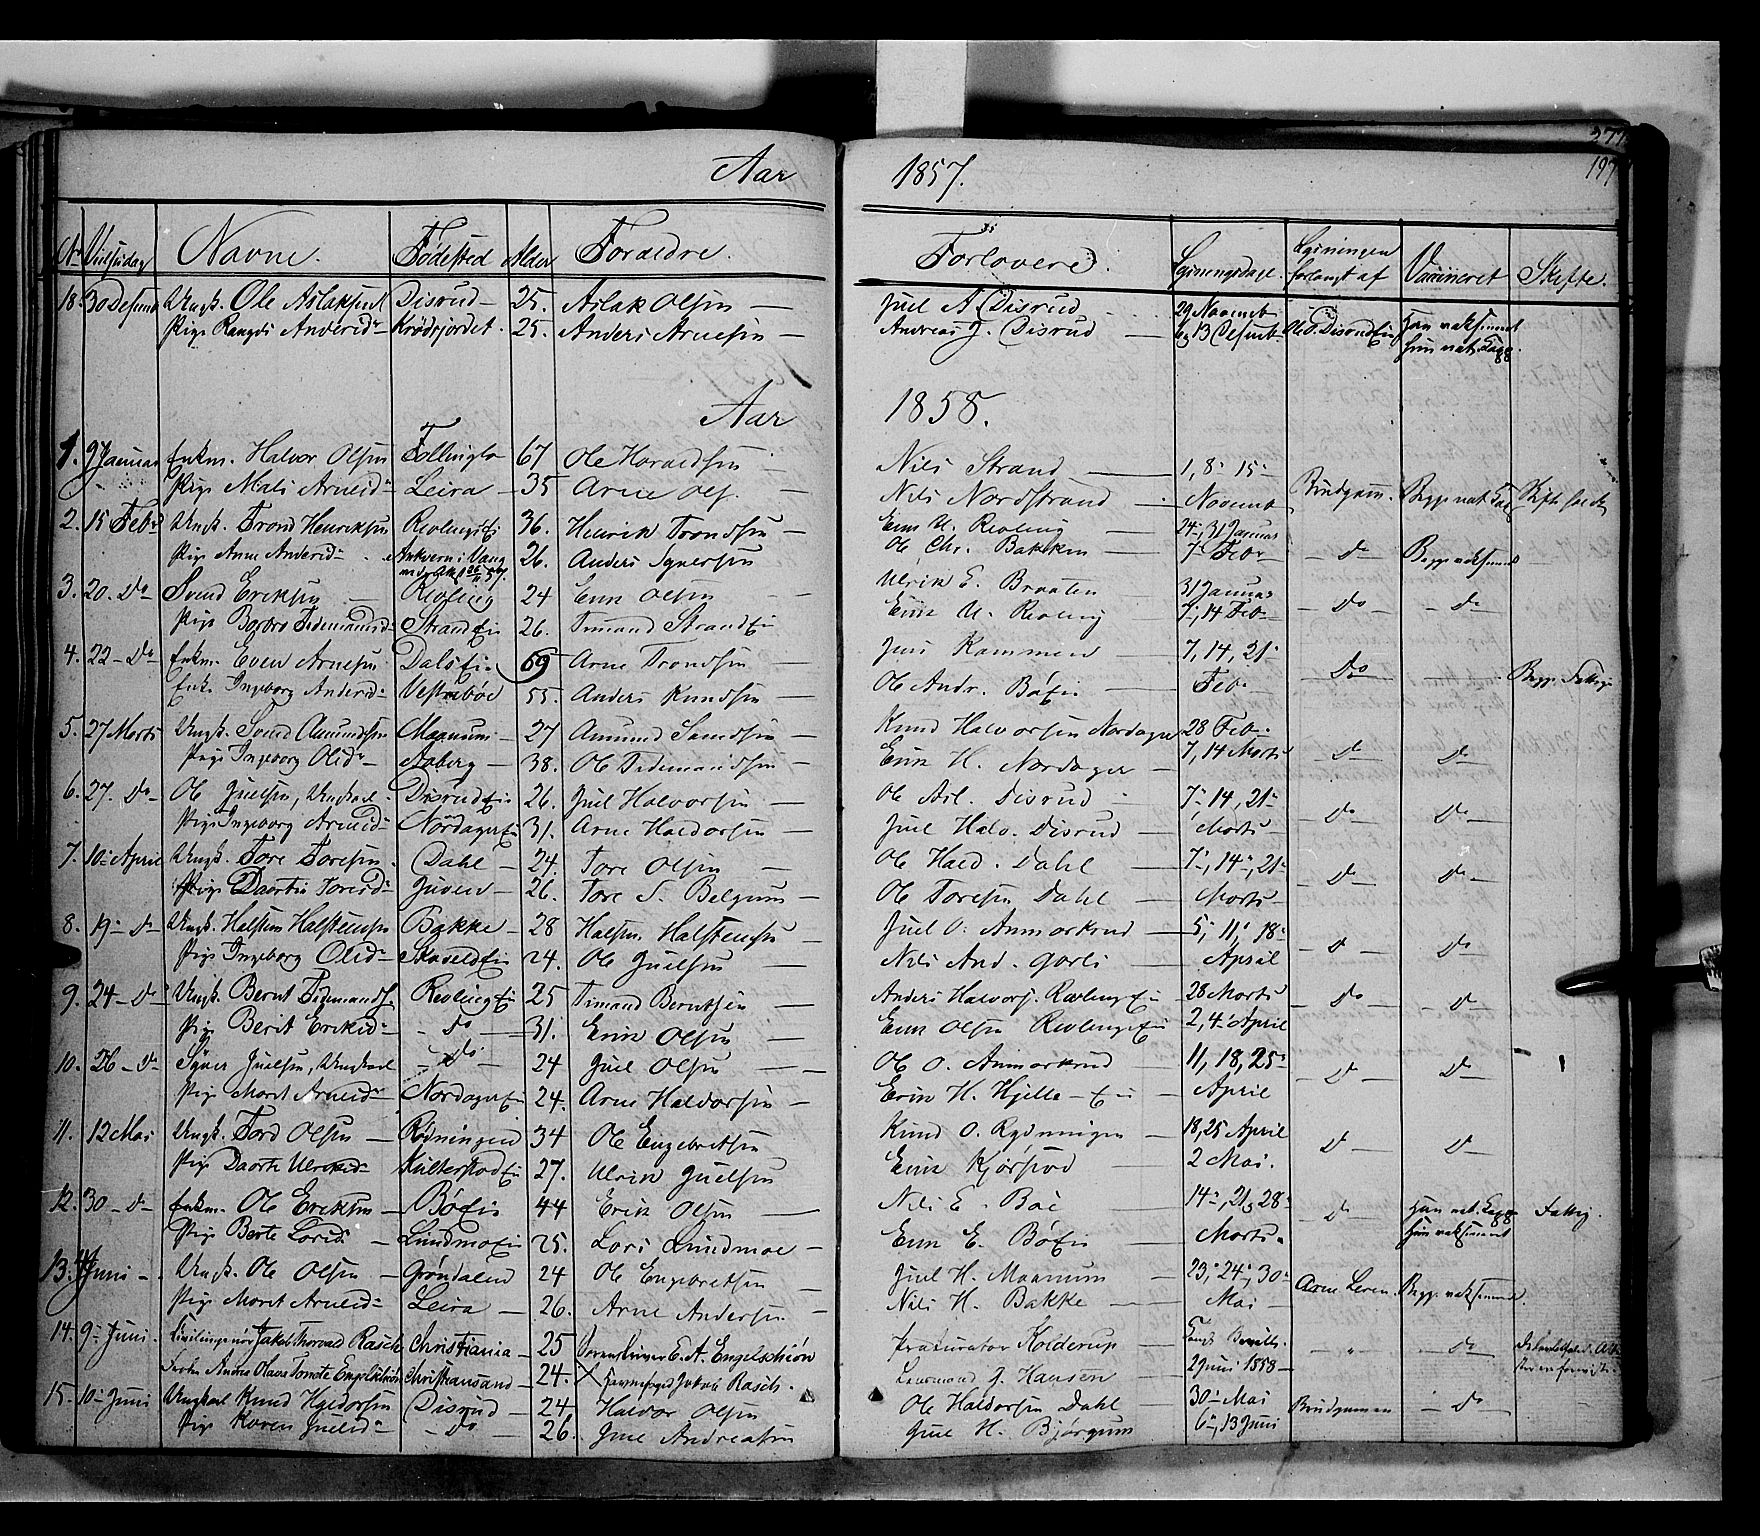 277
197
Aar 1857.
No Vielsesdag Navne. Fødested Alder Forældre. Forlovere. Lysningsdage. Lysningen forlangt af Vaccineret Skifte.
18. 30 Desemb Ungk. Ole Aslaksen Disrud 25. Aslak Olsen Juel A. Disrud 29 Novemb
Pige Rangdi Andersd. Krødsfjordet. 25. Anders Arnesen Andreas J. Disrud og 13 Desemb. Ole Disrud Ei Ham vaksineret
hun nat. Kopp.
Aar 1858.
1. 9 Januar Enkm. Halvor Olsen Follinglo 67 Ole Haraldsen Nils Strand 1, 8, 15
Pige Mali Arnesd. Leira 35 Arne Ols. Nils Nordstrand Novemb Brudgom. Begge nat. Kop Skifte holdt
2. 15 Feb. Ungk. Trond Henriksen Revlings Ei 36. Henrik Trondsen Erik U. Revling 24, 31 Januar
Pige Anne Andersd. i Vang 26. Anders Ole Chr. Bakken 7 Feb. Do Begge vaksineret
3. 20. Do Svend Eriksen Revling 24 Erik Olsen Ulrik E. Braaten 31 Januar
Pige Barbro Tidemansd. Strand Ei 26. Timand Strand Ei Erik U. Revling 7, 14 Feb. Do Do
4. 22 Do Enkm. Even Arnesen Dals Ei 69 Arne Trondsen Jens Kammen 7, 14, 21
Enke Ingeborg Andersd. Vestrebøe 55. Anders Knudsen Ole Andr. Bø Ei Feb. Do Begge Fattige
5. 27 Marts Ungk. Svend Amundsen Maanum 27 Amund Svendsen Knud Halvorsen Nordager 28 Feb.
Pige Ingeborg Olsd. Aaberg 38. Ole Tidemandsen Erik H. Nordager 7, 14 Marts Do Do
6. 27. Do Ole Juelsen, Ungkarl Disrud Ei 26. Juel Halvorsen Ole Asl. Disrud 7, 14, 21
Pige Ingeborg Arnesd. Nordager Ei 31. Arne Haldorsen Juel Halv. Disrud Marts Do Do
7. 10 April Ungk. Tore Toresen. Dahl 24. Tore Olsen Ole Hald. Dahl 7, 14, 21
Pige Daarte Toresd. Juven 26. Tore S. Belgum Ole Toresen Dahl Marts Do Do
8. 19 Do Ungk. Halsten Halstensen Bakke 28 Halsten Halstensen Juel O. Anmarkrud 5, 11, 18
Pige Ingeborg Olsd. Ei 24. Ole Juelsen Nils And. Gorli April Do Do
9. 24 Do Ungk. Bernt Tidemands. Revling Ei 25 Timand Berntsen Anders Halvors. Revling Ei 28 Marts
Pige Berit Eriksd. Do 31. Erik Olsen Erik Olsen Revlings Ei 2, 4 April Do Do
10. 26 Do Syver Juelsen, Ungkarl Do 24 Juel Olsen Ole O. Anmarkrud 11, 18, 25
Pige Marit Arnesd. Nordager Ei 24. Arne Haldorsen Erik H. Hjelle Ei April Do Do
11. 12 Mai Ungk. Tord Olsen Rødningen 34 Ole Engebretsen Knud O. Rydningen 18, 25 April
Pige Daarte Ulriksd. Ei 27. Ulrik Juelsen Erik Kjørstad 2 Mai. Do Do
12. 30 Do Enkm. Ole Eriksen Bø Ei 44 Erik Olsen Nils E. Bøe 14, 21, 28 Ham nat. Kopp. Fattig.
Pige Berte Larsd. Lundmo Ei 25. Lars Lundmoe Erik E. Bø Ei Marts. Do hun vaksineret
13. 4 Juni Ungk. Ole Olsen Grøndalen 24 Ole Engebretsen Juel H. Maanum 23, 24, 30
Pige Marit Arnesd. Leira 26. Arne Andersen Nils H. Bakke Mai Arne Leren. Begge vaksinered.
14. 9 Juni. Civilingeniør Jakob Thorvald Rasch Christiania 25 Sorenskriver E. A. Engelschiøn Prokurator Kolderup Kongl. Bevill.
Frøken Andrea Olava Tomete Engelschiøn Christiansand 24. Havnefoged Jakob Rasch. Lensmand J. Hansen 2 Juni 1858 Do
15. 10 Juni Ungkarl Knud Haldorsen Disrud 24 Halvor Olsen Ole Haldorsen Dahl 30 Mai
Pige Karen Juelsd. Do 26. Juel Andreasen Juel H. Bjørgum 6, 13 Juni Brudgommen Do